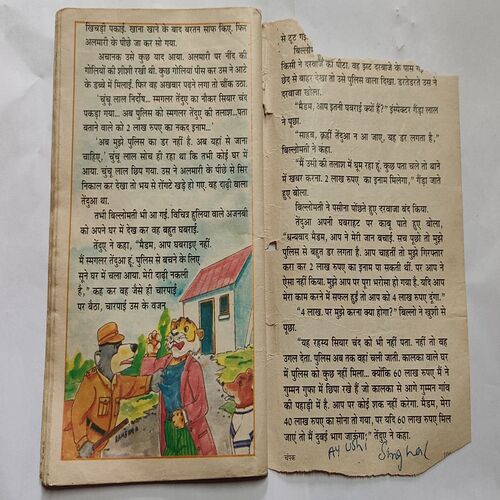 खिचड़ी पकाई. खाना खाने के बाद बरतन साफ किए. फिर
अलमारी के पीछे जा कर सो गया.
अचानक उसे कुछ याद आया. अलमारी पर नींद की
गोलियों की शीशी रखी थी. कुछ गोलियां पीस कर उस ने आटे
के डब्बे में मिलाई. फिर वह अखबार पढ़ने लगा तो चौंक उठा.
'चुंचू लाल निर्दोष... स्मगलर तेंदुए का नौकर सियार चंद
पकड़ा गया... अब पुलिस को स्मगलर तेंदुए की तलाश...पता
बताने वाले को 2 लाख रुपए का नकद इनाम...'
'अब मुझे पुलिस का डर नहीं है. अब यहां से जाना
चाहिए,' चुंचू लाल सोच ही रहा था कि तभी कोई घर में
आया. चुंचू लाल छिप गया. उस ने अलमारी के पीछे से सिर
निकाल कर देखा तो भय से रोंगटे खड़े हो गए. वह दाढ़ी वाला
तेंदुआ था.
तभी बिल्लोमती भी आ गई. विचित्र हुलिया वाले अजनबी
को अपने घर में देख कर वह बहुत घबराई.
तेंदुए ने कहा, "मैडम, आप घबराइए नहीं.
मैं स्मगलर तेंदुआ हूं. पुलिस से बचने के लिए
सूने घर में चला आया. मेरी दाढ़ी नकली
है," कह कर वह जैसे ही चारपाई
पर बैठा, चारपाई उस के वजन
से टूट गई
बिल्लोम
किसी ने दरवाजे को पीटा. वह झट दरवाजे के पास ग
छेद से बाहर देखा तो उसे पुलिस वाला दिखा. डरतेडरते उस ने
दरवाजा खोला.
"मैडम, आप इतनी घबराई क्यों हैं?" इंस्पेक्टर गैंड़ा लाल
ने पूछा.
"साहब, कहीं तेंदुआ न आ जाए, यह डर लगता है,"
बिल्लोमती ने कहा.
"मैं उसी की तलाश में घूम रहा हूं. कुछ पता चले तो थाने
में खबर करना. 2 लाख रुपए का इनाम मिलेगा," गैंड़ा जाते
हुए बोला.
बिल्लोमती ने पसीना पोंछते हुए दरवाजा बंद किया.
तेंदुआ अपनी घबराहट पर काबू पाते हुए बोला,
"धन्यवाद मैडम, आप ने मेरी जान बचाई. सच पूछो तो मुझे
पुलिस से बहुत डर लगता है. आप चाहतीं तो मुझे गिरफ्तार
करा कर 2 लाख रुपए का इनाम पा सकती थीं. पर आप ने
ऐसा नहीं किया. मुझे आप पर पूरा भरोसा हो गया है. यदि आप
मेरा काम करने में सफल हुईं तो आप को 4 लाख रुपए दूंगा."
"4 लाख. पर मुझे करना क्या होगा?" बिल्लो ने खुशी से
पूछा.
"यह रहस्य सियार चंद को भी नहीं पता. नहीं तो वह
उगल देता. पुलिस अब तक वहां चली जाती. कालका वाले घर
में पुलिस को कुछ नहीं मिला... क्योंकि 60 लाख रुपए मैं ने
गुम्मन गुफा में छिपा रखे हैं जो कालका से आगे गुम्मन गांव
की पहाड़ी में है. आप पर कोई शक नहीं करेगा. मैडम, मेरा
40 लाख रुपए का सोना तो गया, पर यदि 60 लाख रुपए मिल
जाएं तो मैं दुबई भाग जाऊंगा;" तेंदुए ने कहा.
AYUShi Singhal
चंपक